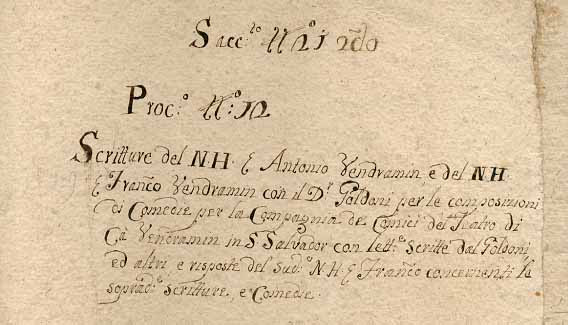 Sacc.to N.o 21 2do
Proc.o N.o: 12
Scritture del NH. E Antonio Vendramin e del NH.
E Franco Vendramin con il Dr. Goldoni per le composizioni
di Comedie per la Compagnia de Comici del Teatro di
Cà Vendramin in S. Salvador con lettre scritte dal Goldoni
ed altri, e risposte del sud.o N.H. E Franco concernenti la
soprad.e scritture, e Comedie.